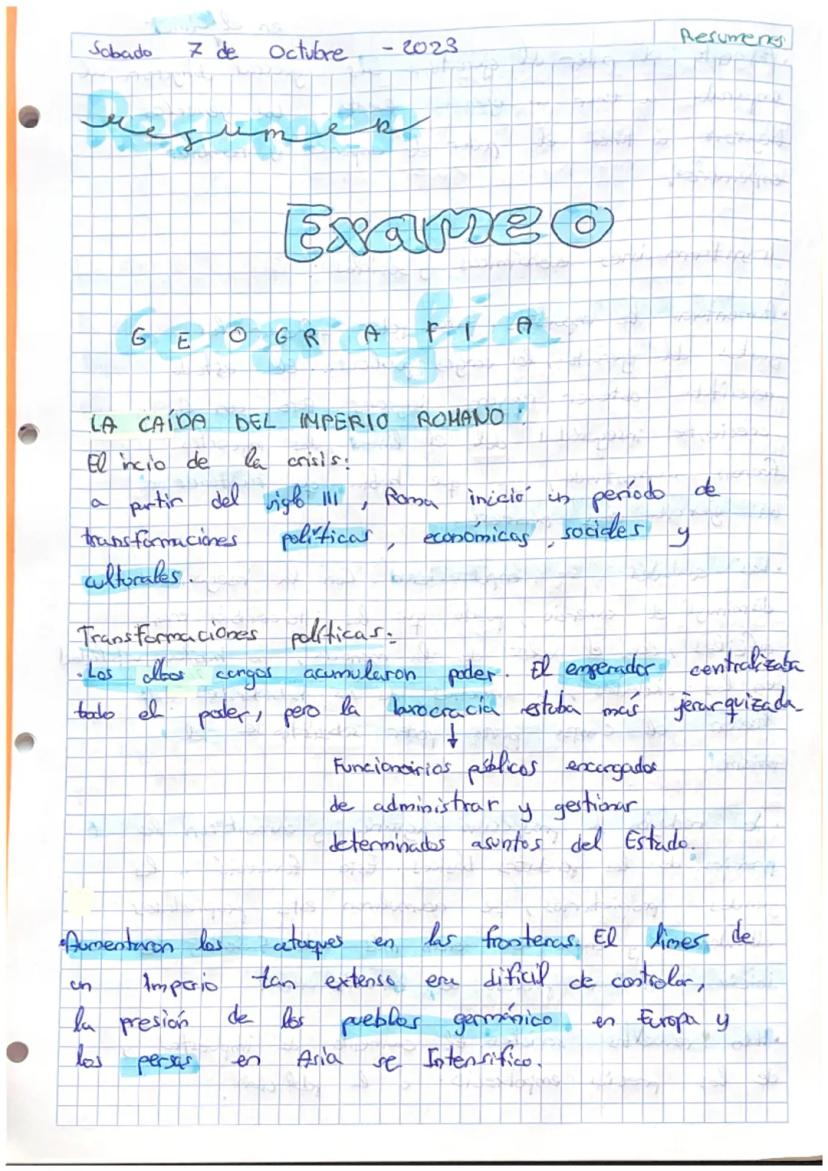 Resumenes
Sabado 7 de Octubre - 2023
Resumen
resumen
Exameo
Geografia
G E O G R A F I A
LA CAÍDA DEL IMPERIO ROMANO :
El incio de la crisis:
a partir del siglo III , Roma inició un período de
transformaciones políticas , económicas , sociales y
culturales .
Transformaciones políticas:
·Los altos cargos acumularon poder. El emperador centralizaba
todo el poder, pero la burocracia estaba más jerarquizada
↓
Funcionarios públicos encargados
de administrar y gestionar
determinados asuntos del Estado.
·Aumentaron los ataques en las fronteras. El limes de
un Imperio tan extenso era dificil de controlar,
la presión de los pueblos germánico en Europa y
los persas en Asia se Intensifico.